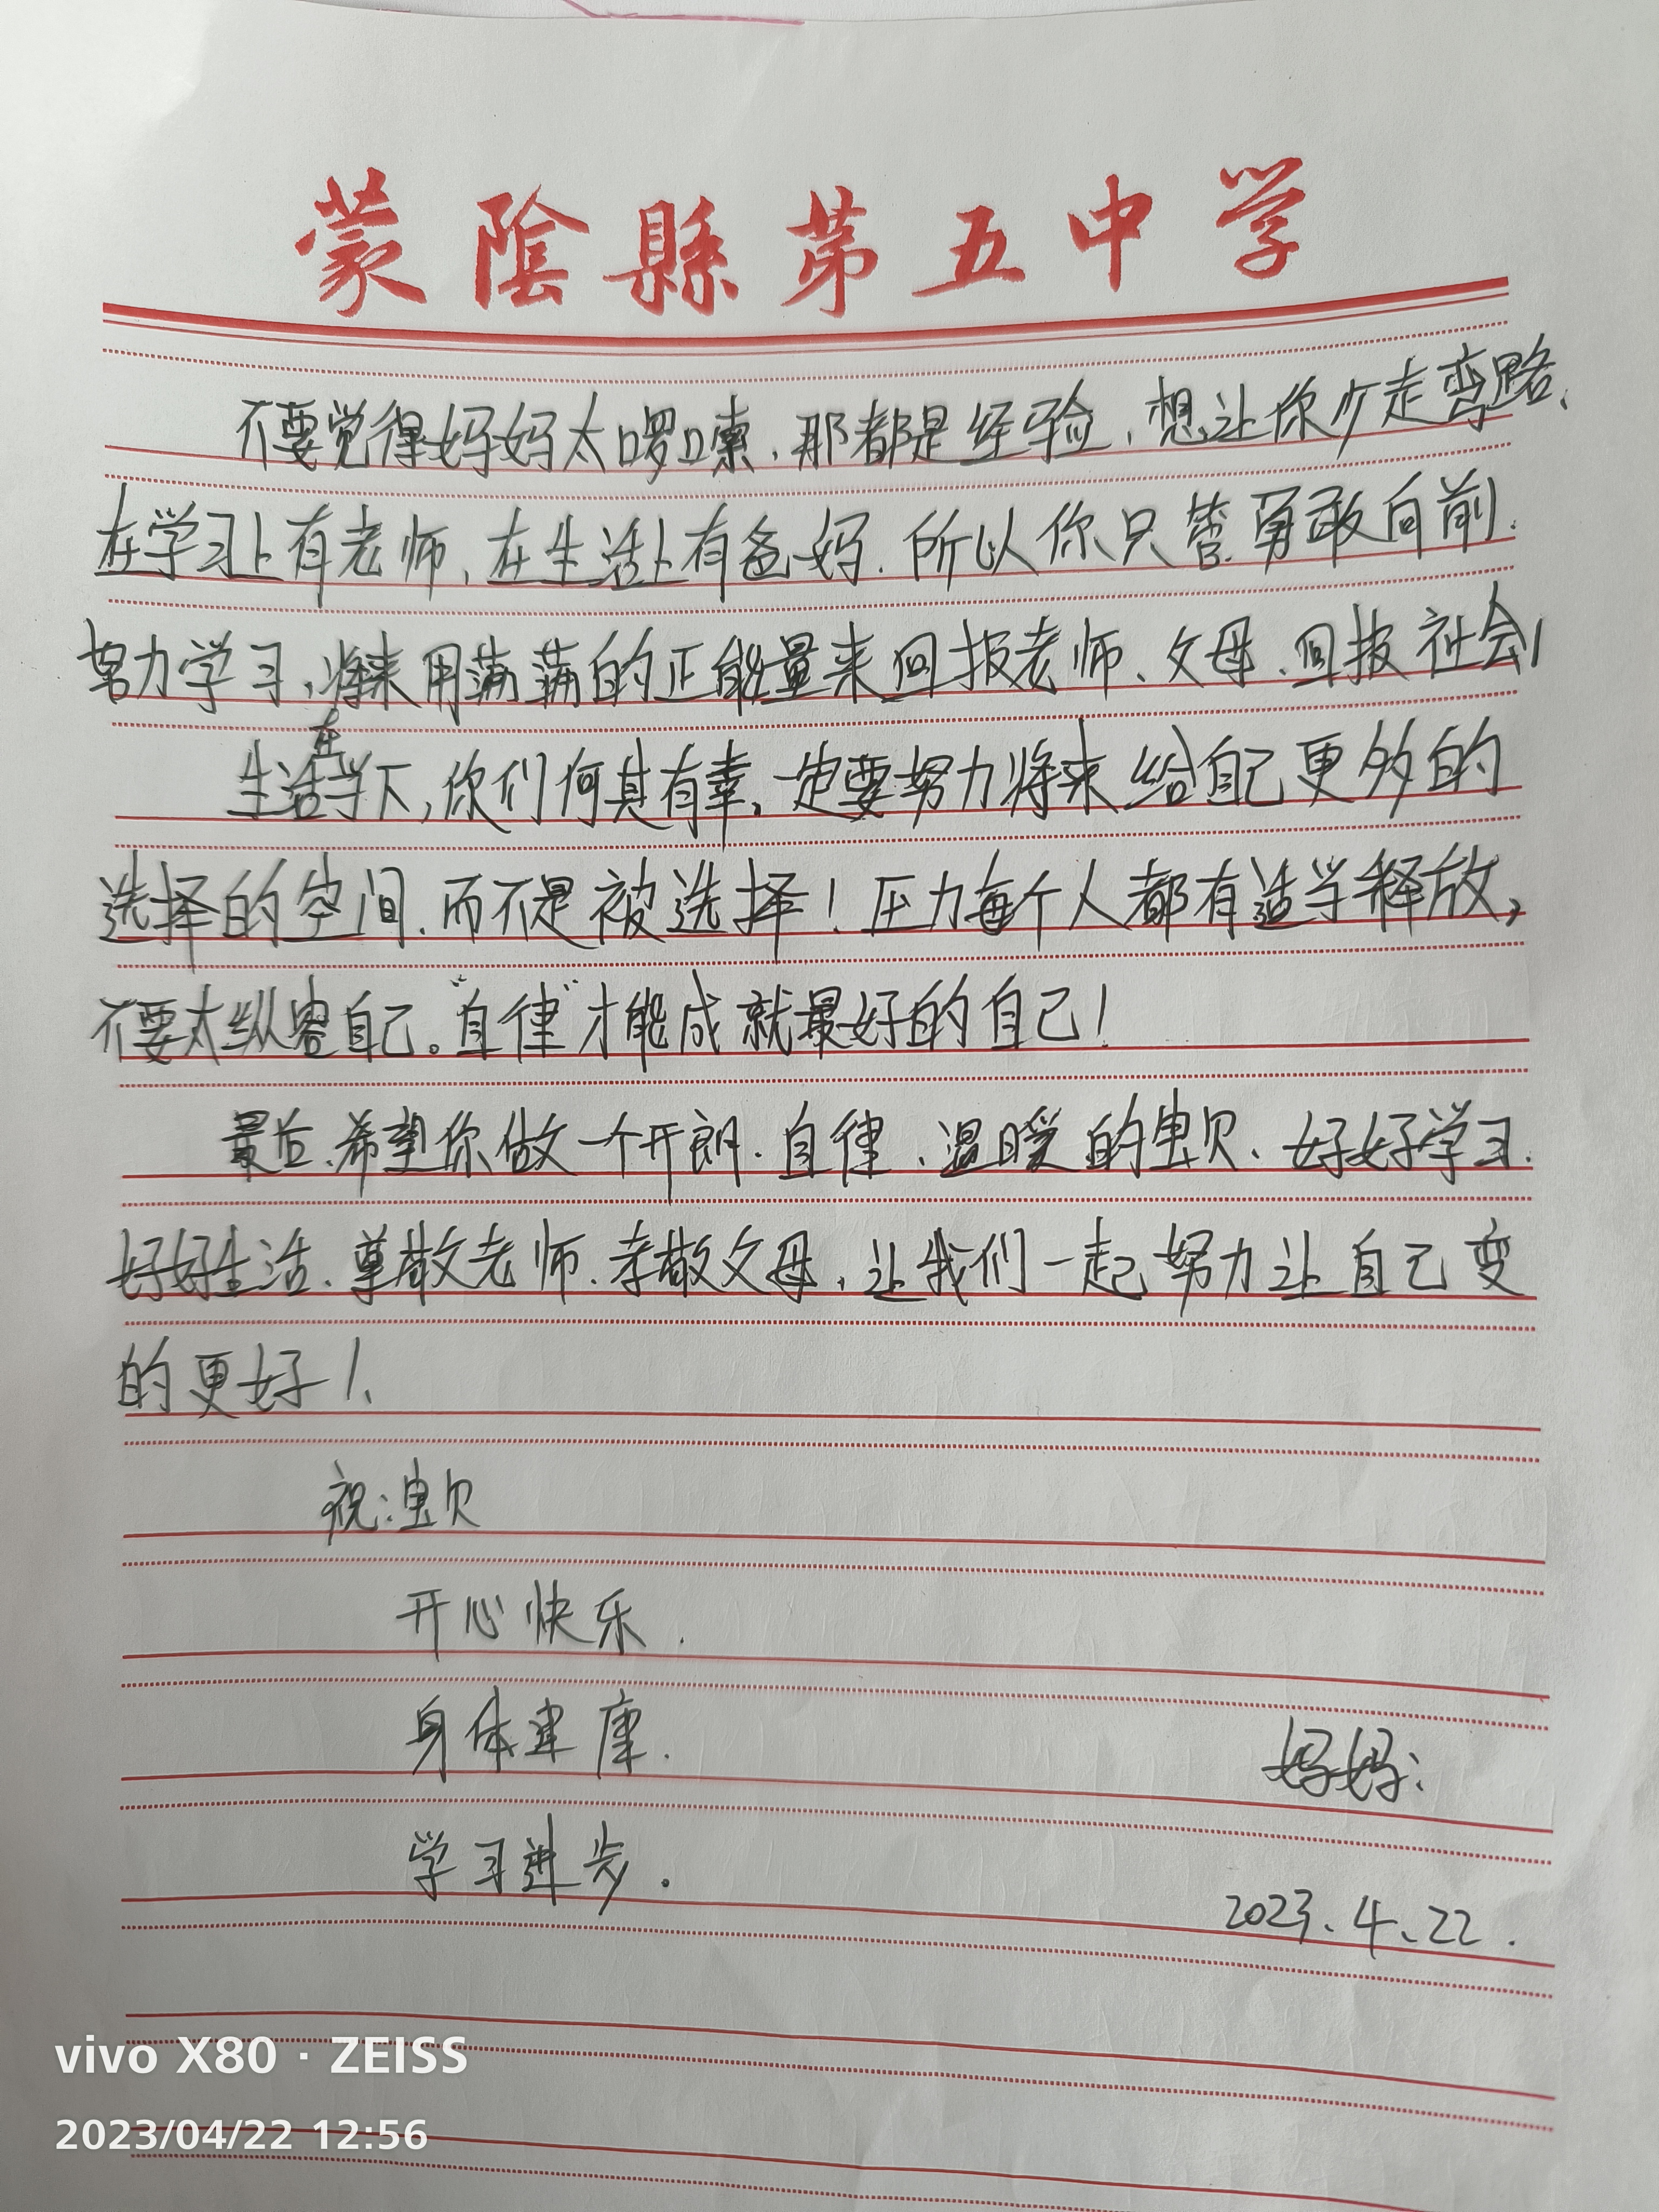 蒙陰縣第五中学
不要觉得妈妈太啰嗦、那都是经验,想让你少走弯路、
在学习上有老师、在生活上有爸妈.所以你只管勇敢向前.
努力学习,将来用满满的正能量来回报老师、父母、回报社会!
在
生活当下,你们何其有幸。一定要努力将来给自己更多的
选择的空间.而不是被选择!压力每个人都有适当释放,
不要太纵容自己。“自律”才能成就最好的自己!
最后、希望你做一个开朗.自律、温暖的宝贝、好好学习.
好好生活、尊敬老师.孝敬父母,让我们一起努力让自己变
的更好!、
祝:宝贝
开心快乐.
身体健康.
妈妈:
学习进步.
2023、4、22.
vivo X80 · ZEISS
2023/04/22 12:56